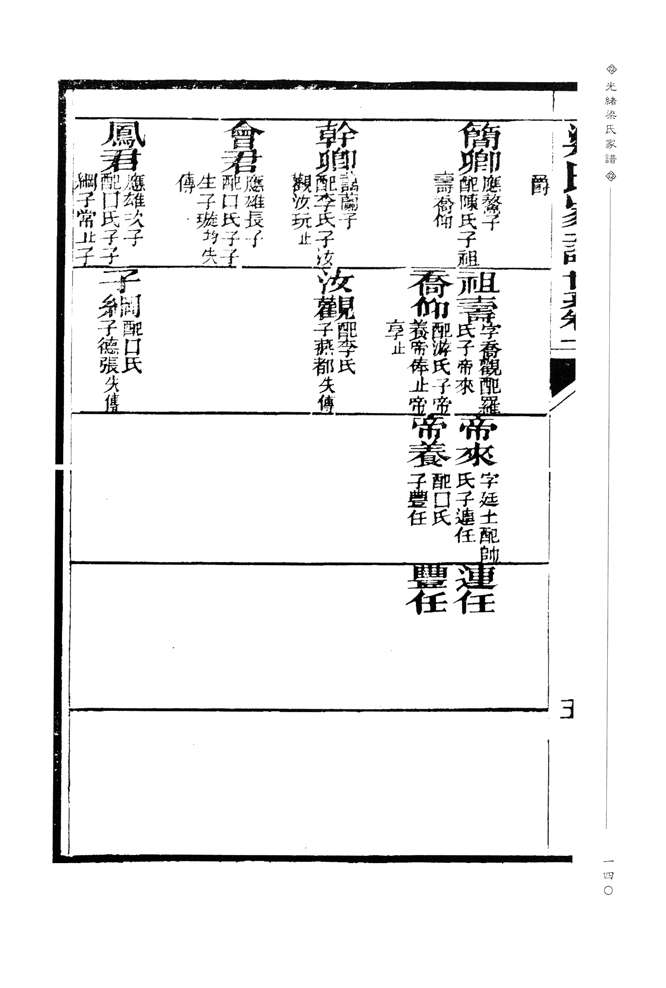 光緒梁氏家譜
一四〇
爵
簡卿
應鰲子
配陳氏子祖
壽喬仰
幹卿
配李氏子汝
觀汝玩止
會君
應雄長子
配口氏子子
生子璇均失
傳
鳳君
應雄次子
配口氏子子
綱子常止子
祖壽
字喬觀配羅
氏子帝來
喬仰
配游氏子帝
養帝俸止帝
享止
汝觀
配李氏
子燕都失傳
子綱
配口氏
子德張失傳
帝來
字廷土配帥
氏子連任
帝養
配口氏
子豐任
連任
豐任